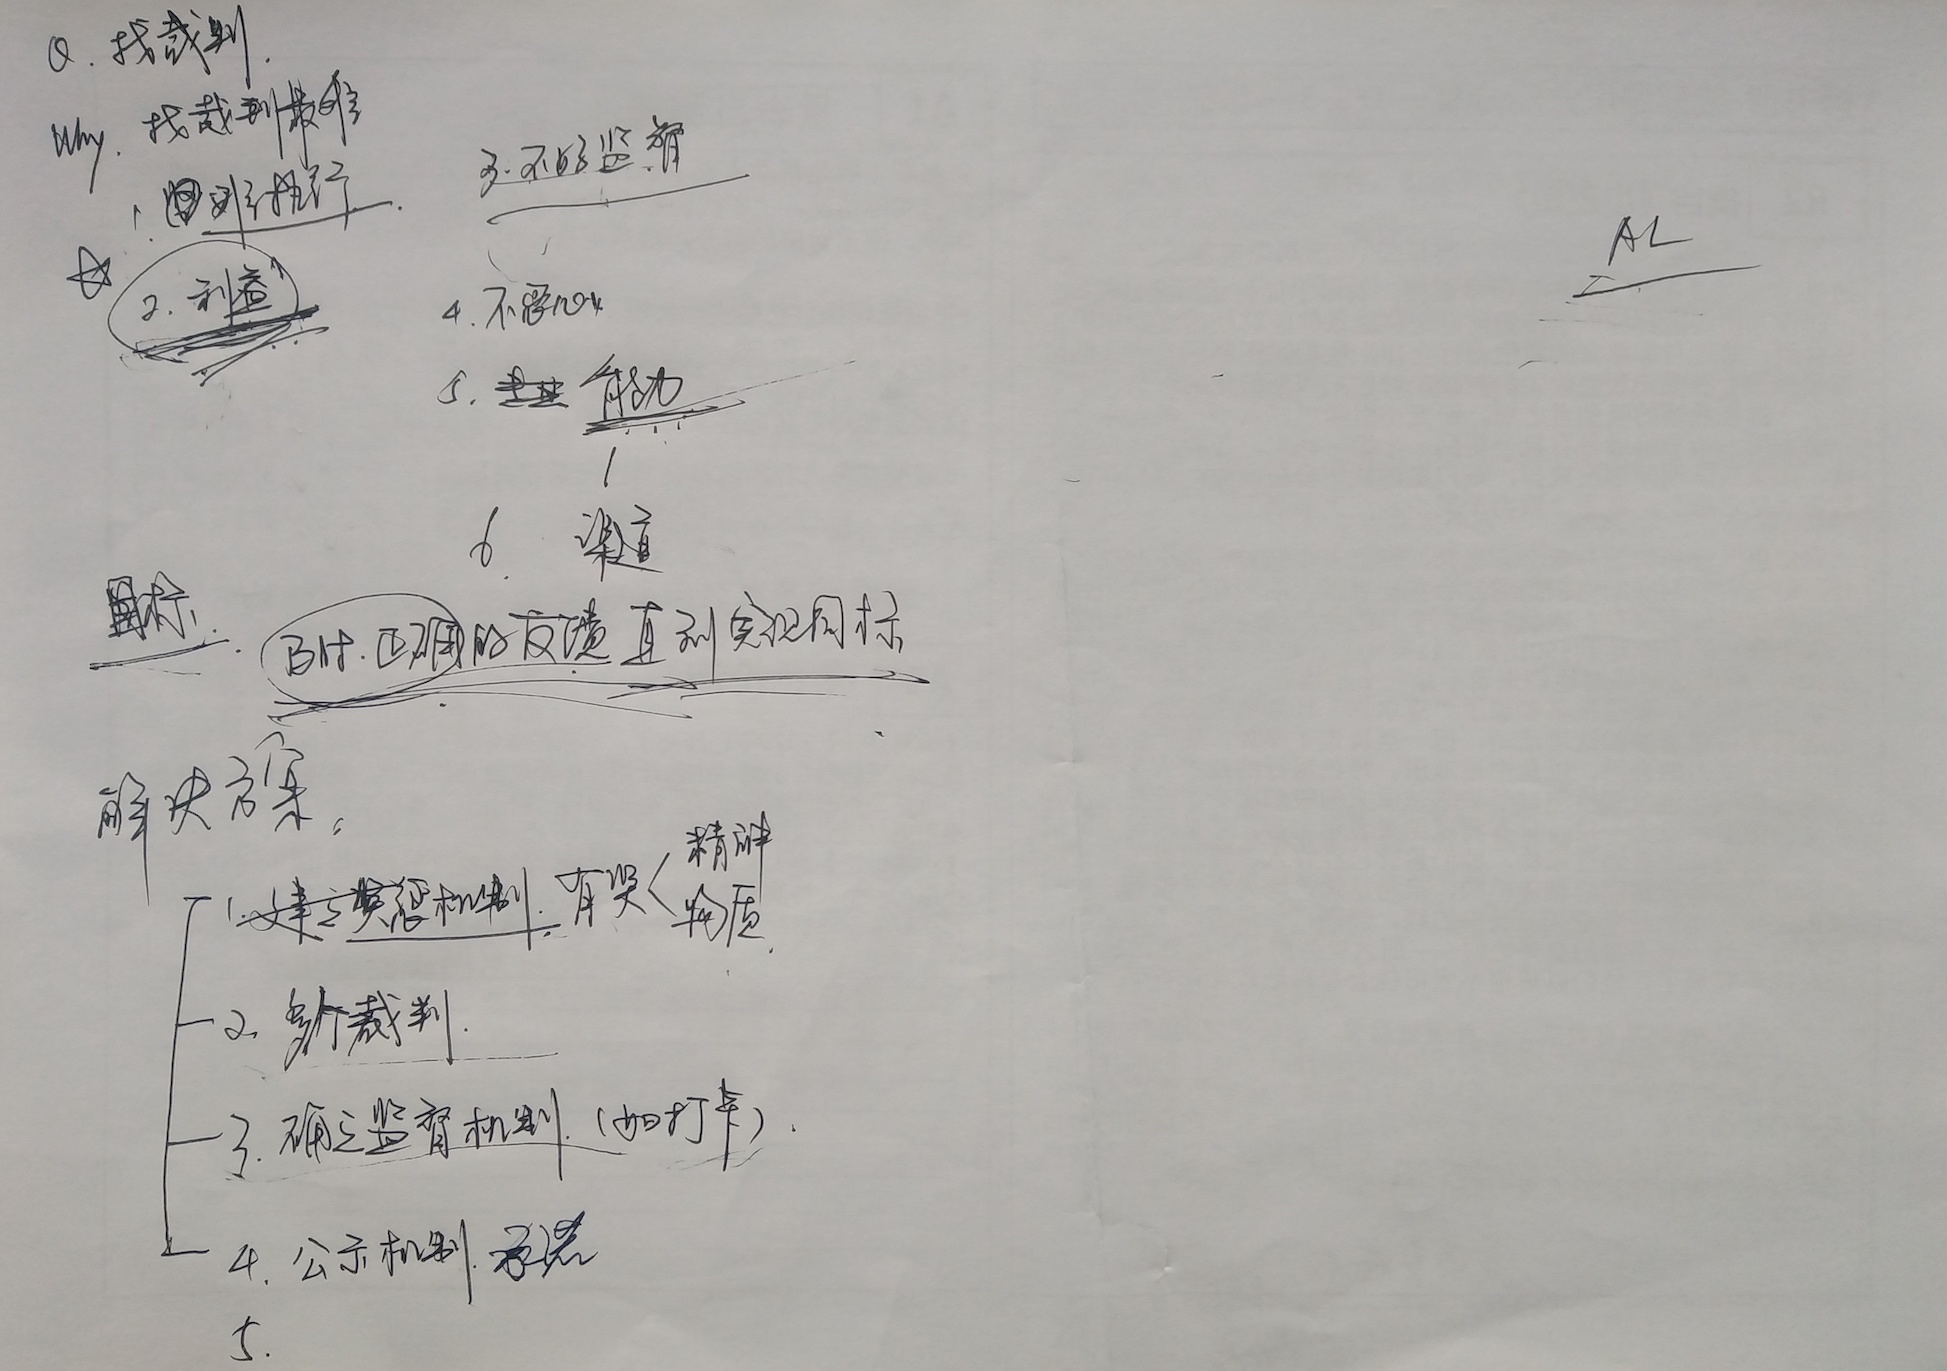 Q. 找裁判.
Why. 找裁判最难
1. 到 执行.
2. 利益
3. 不好监督
4. 不
5. 能力
6. 渠道
目标.
及时.正确的反馈直到实现目标
解决方案。
1. 建立奖惩机制. 有奖<精神
物质.
2. 多个裁判.
3. 确立监督机制. (如打卡).
4. 公示机制. 承诺
5.
AL